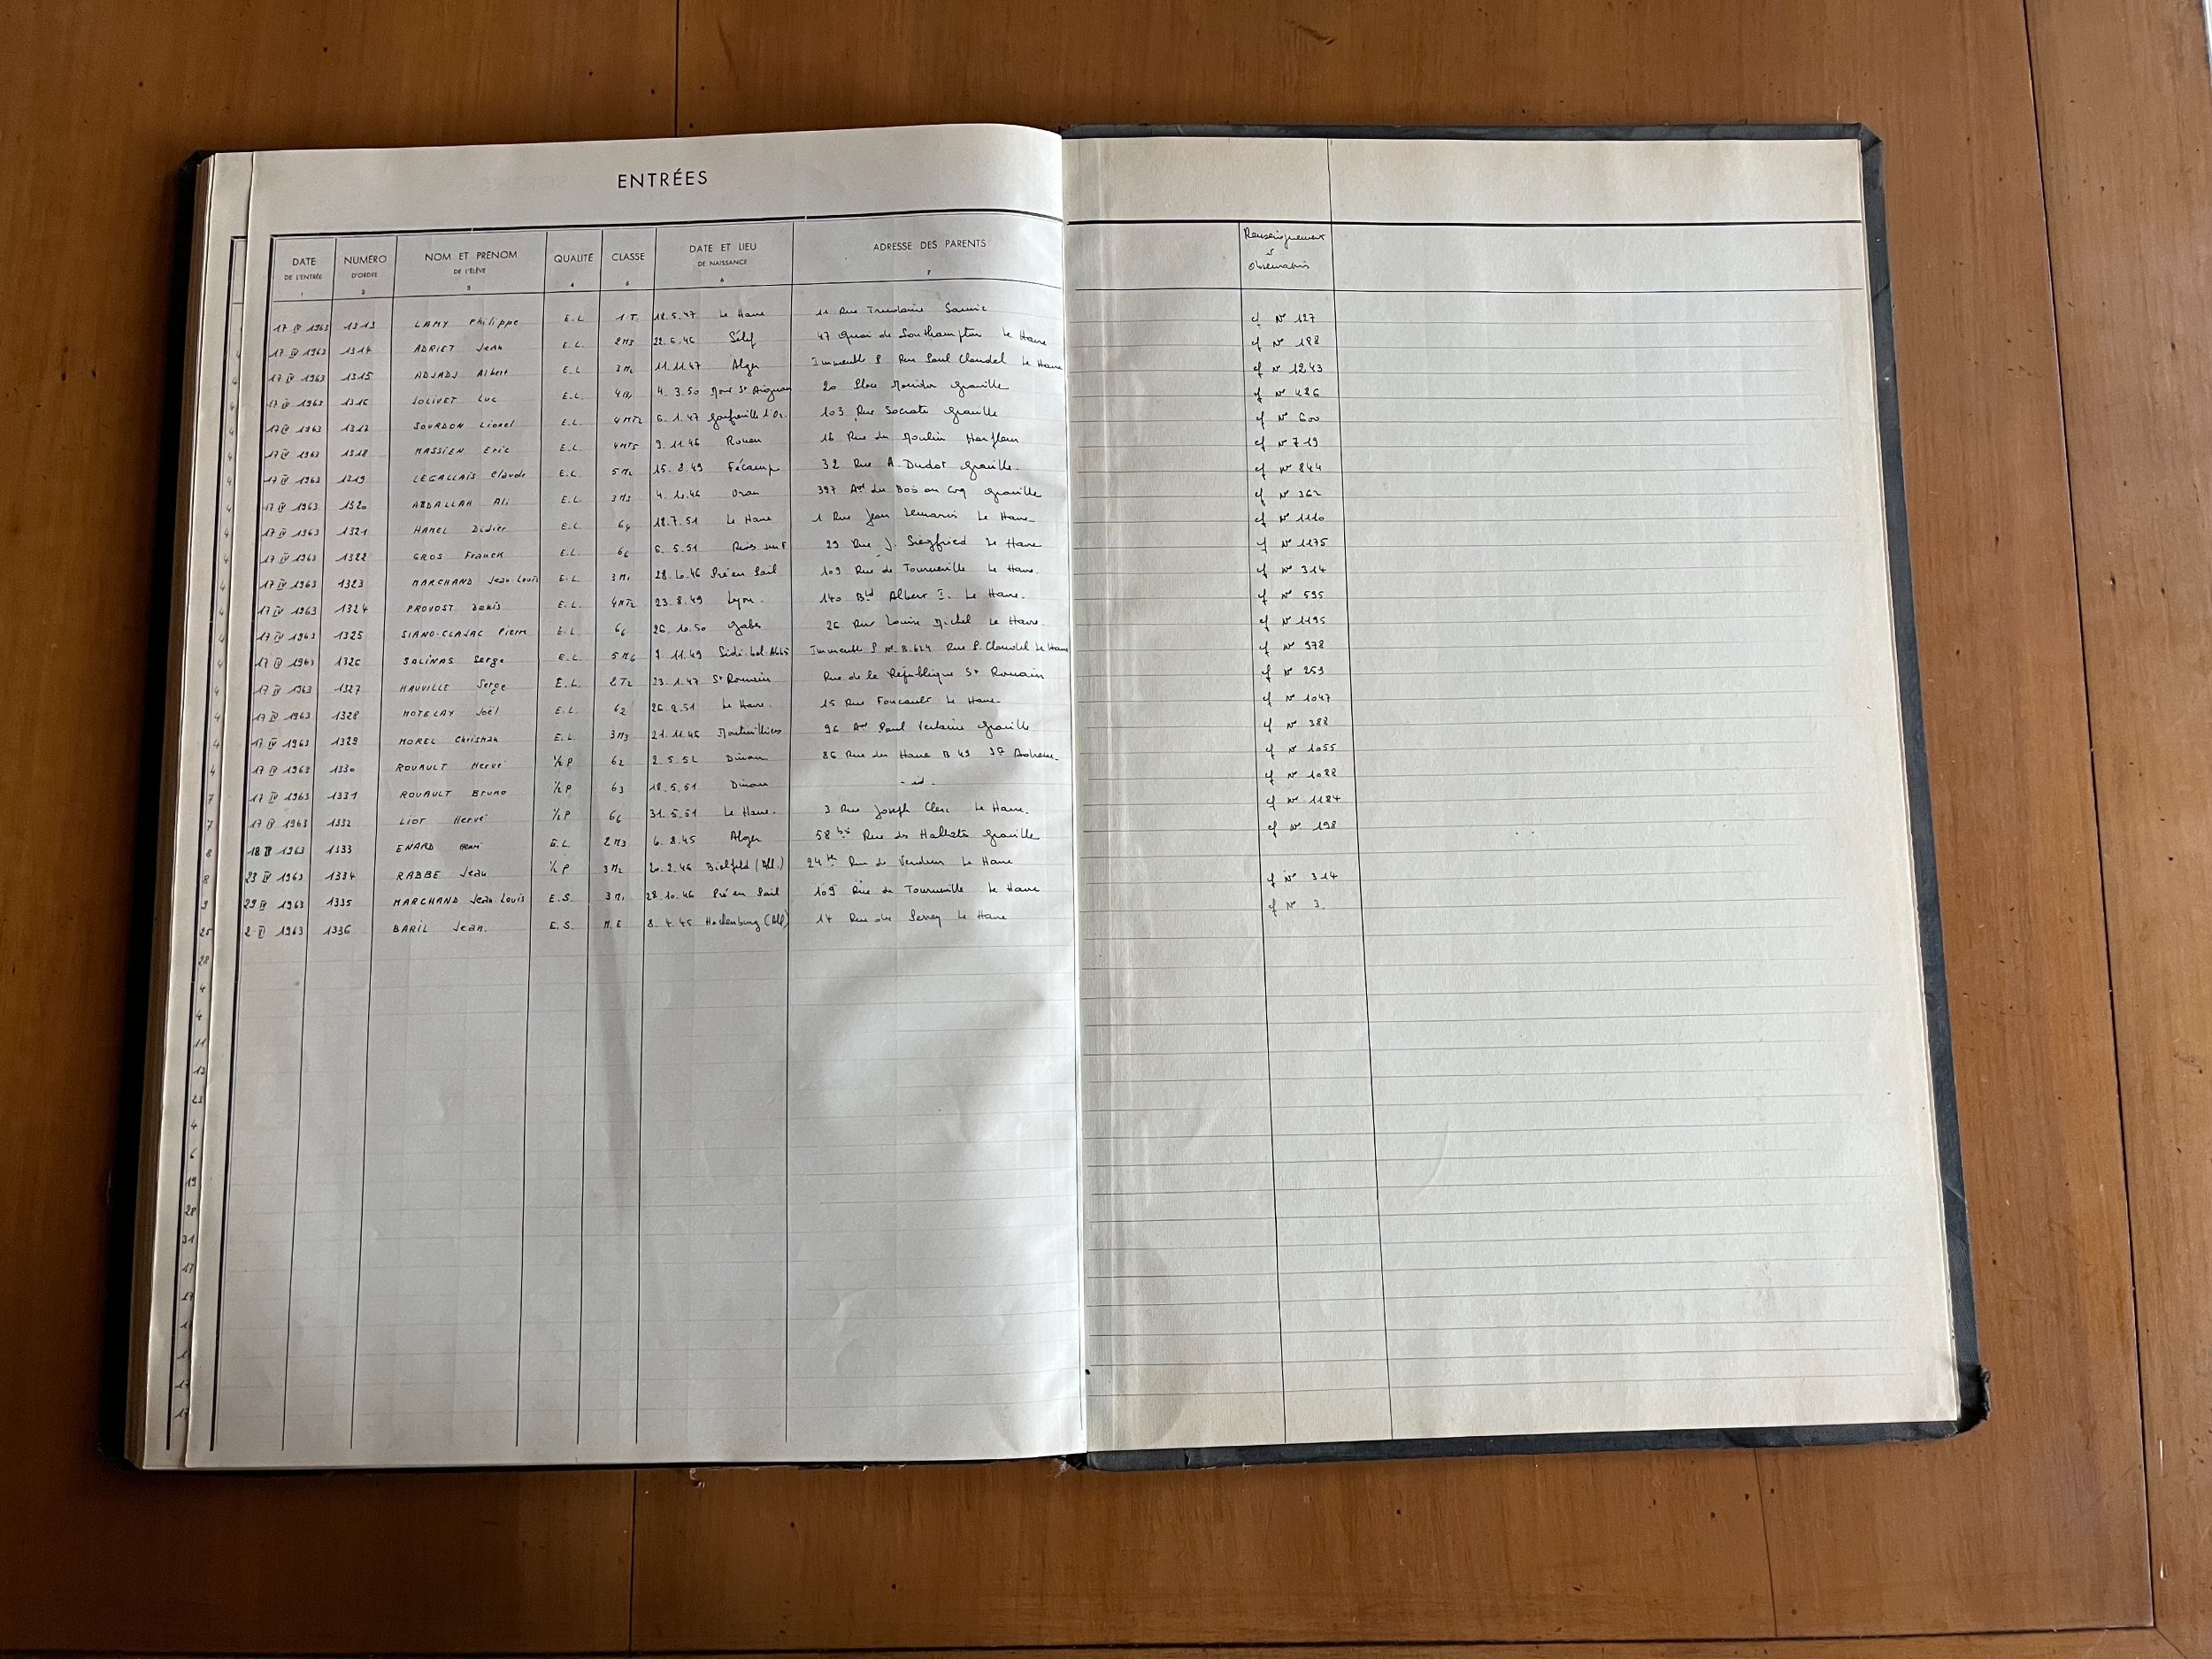 ENTRÉES
DATE DE L'ENTRÉE 1 NUMÉRO D'ORDRE 2 NOM ET PRÉNOM DE L'ÉLÈVE 3 QUALITÉ 4 CLASSE 5 DATE ET LIEU DE NAISSANCE 6 ADRESSE DES PARENTS 7 Renseignement et observations
17 IV 1963 1313 LAMY Philippe E.L 1T 18.5.47 Le Havre 11 Rue cf N° 127
17 IV 1963 1314 ADRIET Jean E.L. 2M3 22.6.46 Sétif 47 Quai de Southampton Le Havre cf N° 188
17 IV 1963 1315 ADJADJ Albert E.L 3M2 11.11.47 Alger Immeuble P Rue Paul Claudel Le Havre cf N° 1243
17 IV 1963 1316 JOLIVET Luc E.L. 4B1 4.3.50 Mont St Aignan 20 Place Graville cf N° 486
17 IV 1963 1317 SOURDON Lionel E.L. 4MT2 6.1.47 Gonfreville l'Or. 103 Rue Socrate Graville cf N° 600
17 IV 1963 1318 MASSIEN Eric E.L. 4MT5 9.11.46 Rouen 16 Rue du Moulin Harfleur cf N° 719
17 IV 1963 1319 LEGALLAIS Claude E.L. 5M2 15.8.49 Fécamp 32 Rue A. Dudot Graville. cf N° 844
17 IV 1963 1320 ABDALLAH Ali E.L. 3M3 4.10.46 Oran 397 Av du Bois au Coq Graville cf N° 362
17 IV 1963 1321 HAMEL Didier E.L. 64 18.7.51 Le Havre 1 Rue Jean Le Havre cf N° 1110
17 IV 1963 1322 GROS Franck E.L. 66 6.5.51 29 Rue J. Siegfried Le Havre cf N° 1175
17 IV 1963 1323 MARCHAND Jean-Louis E.L 3M1 28.10.46 Pré en Pail 109 Rue de Tourneville Le Havre. cf N° 314
17 IV 1963 1324 PROVOST Denis E.L. 4MT2 23.8.49 Lyon. 140 Bld Albert I. Le Havre. cf N° 595
17 IV 1963 1325 SIANO-CLAJAC Pierre E.L 66 26.10.50 Gabès 26 Rue Louise Michel Le Havre. cf N° 1195
17 IV 1963 1326 SALINAS Serge E.L. 5M6 7.11.49 Sidi-bel-Abbès Immeuble P N° B.624 Rue P. Claudel Le Havre cf N° 978
17 IV 1963 1327 HAUVILLE Serge E.L. 2T2 23.1.47 St Romain Rue de la République St Romain cf N° 259
17 IV 1963 1328 MOTELAY Joël E.L. 62 26.2.51 Le Havre. 15 Rue Foucault Le Havre cf N° 1047
17 IV 1963 1329 MOREL Christian E.L. 3M3 21.11.46 Montivilliers 96 Av Paul Verlaine Graville cf N° 388
17 IV 1963 1330 ROUAULT Hervé ½ P 62 2.5.52 Dinan 86 Rue du Havre B 49 Ste Adresse cf N° 1055
17 IV 1963 1331 ROUAULT Bruno ½ P 63 18.5.51 Dinan - id - cf N° 1088
17 IV 1963 1332 LIOT Hervé ½ P 66 31.5.51 Le Havre. 3 Rue Joseph Clerc Le Havre. cf N° 1184
18 IV 1963 1333 ENARD Henri E.L. 2M3 6.8.45 Alger 58 bis Rue des Hallates Graville cf N° 198
23 IV 1963 1334 RABBE Jean ½ P 3M2 20.2.46 Bielfeld (All.) 24 Rue de Verdun Le Havre
29 IV 1963 1335 MARCHAND Jean-Louis E.S. 3M1 28.10.46 Pré en Pail 109 Rue de Tourneville Le Havre cf N° 314
2 1963 1336 BARIL Jean. E.S. M.E 8.4.45 (All) 14 Rue du Perrey Le Havre cf N° 3.